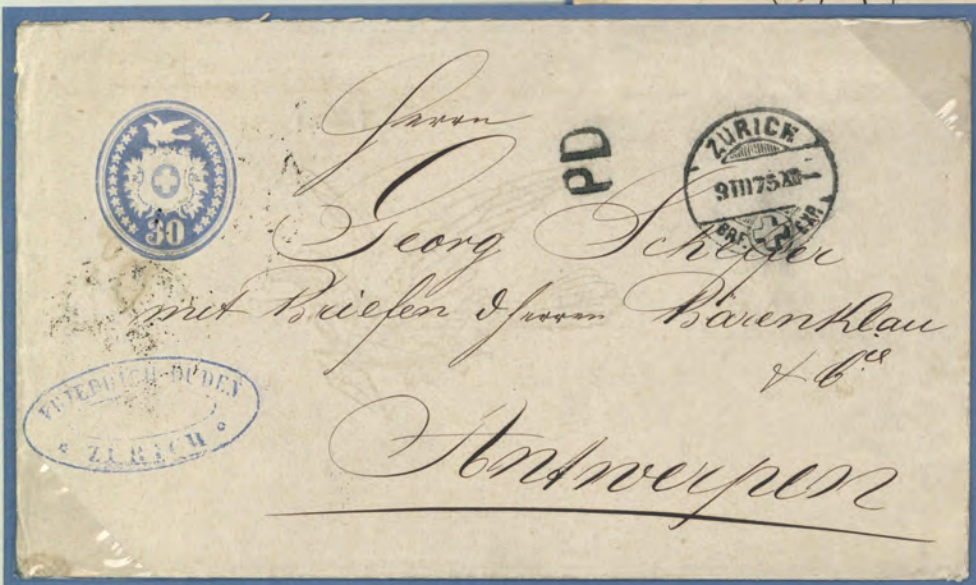 30
Herrn
PD
ZÜRICH
9 III 75 XII
BRF. EXP.
Georg Schäfer
mit Briefen d Herren Bärenklau
& Cie
FRIEDRICH DUDEN
ZÜRICH
Antwerpen